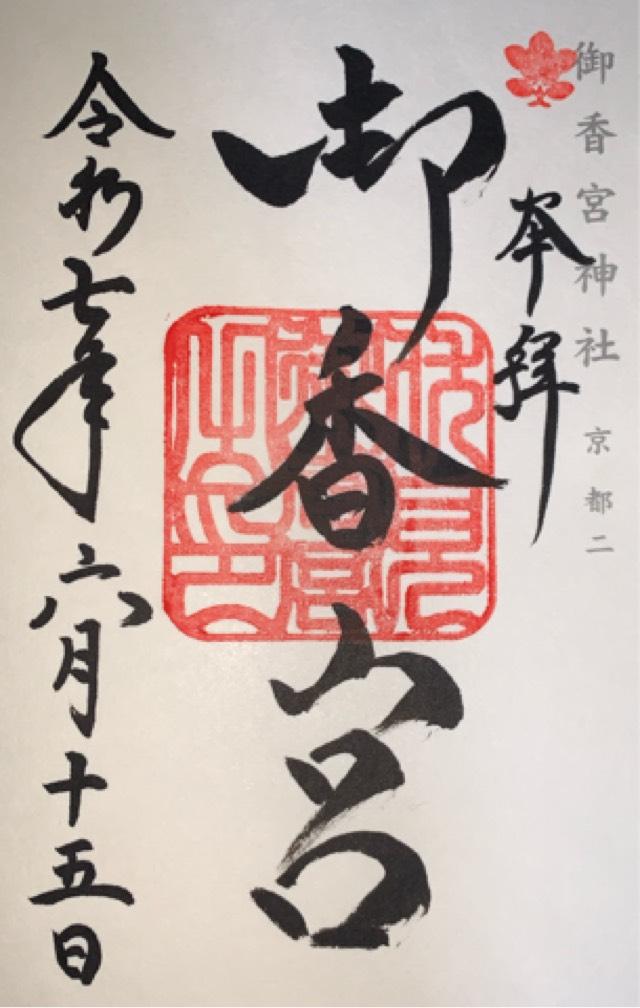 御香宮神社 京都二
奉拝
御香宮
令和七年六月十五日